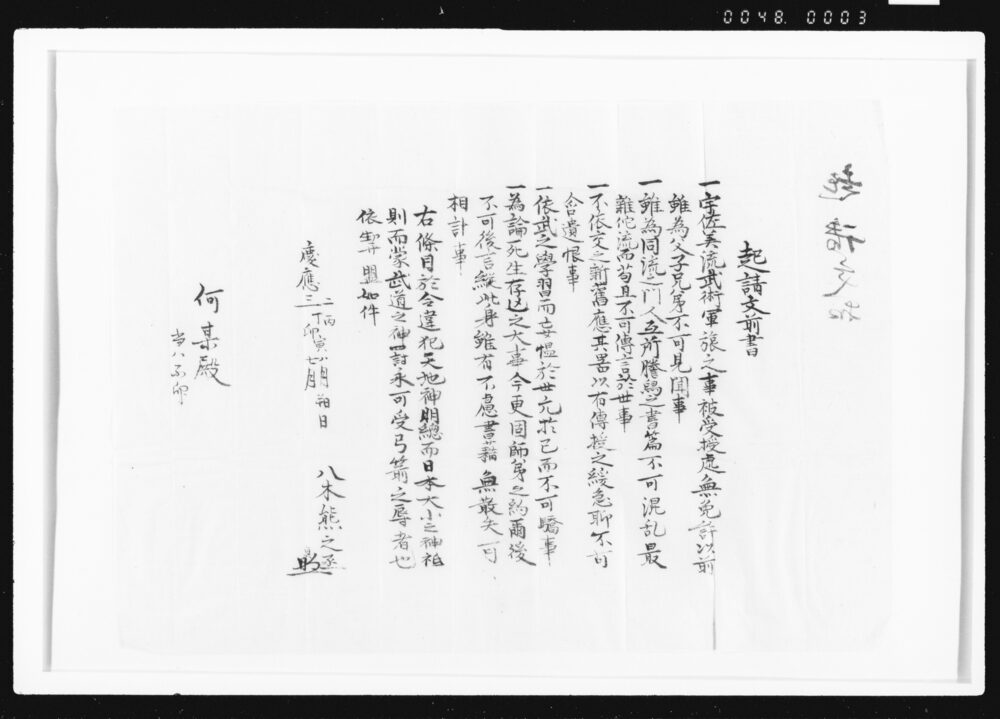 0048. 0003
起請文前書
一宇佐美流武術軍旅之事被受授處無免許以前
雖為父子兄弟不可見聞事
一雖為同流之門人互所謄寫之書篇不可混乱最
雖佗流而苟且不可傳言於世事
一不依交之新舊應其器以有傳授之緩急聊不可
含遺恨事
一依武之學習而妄慍於世亢於己而不可驕事
一為論死生存亡之大事今更固師弟之約爾後
不可後言縦此身雖有不慮書籍無散失可
相計事
右條目於令違犯天地神明總而日本大小之神祇
則而蒙武道之神罸永可受弓箭之辱者也
依掣盟如件
慶應三 丁卯 七月
八木熊之丞
何某殿